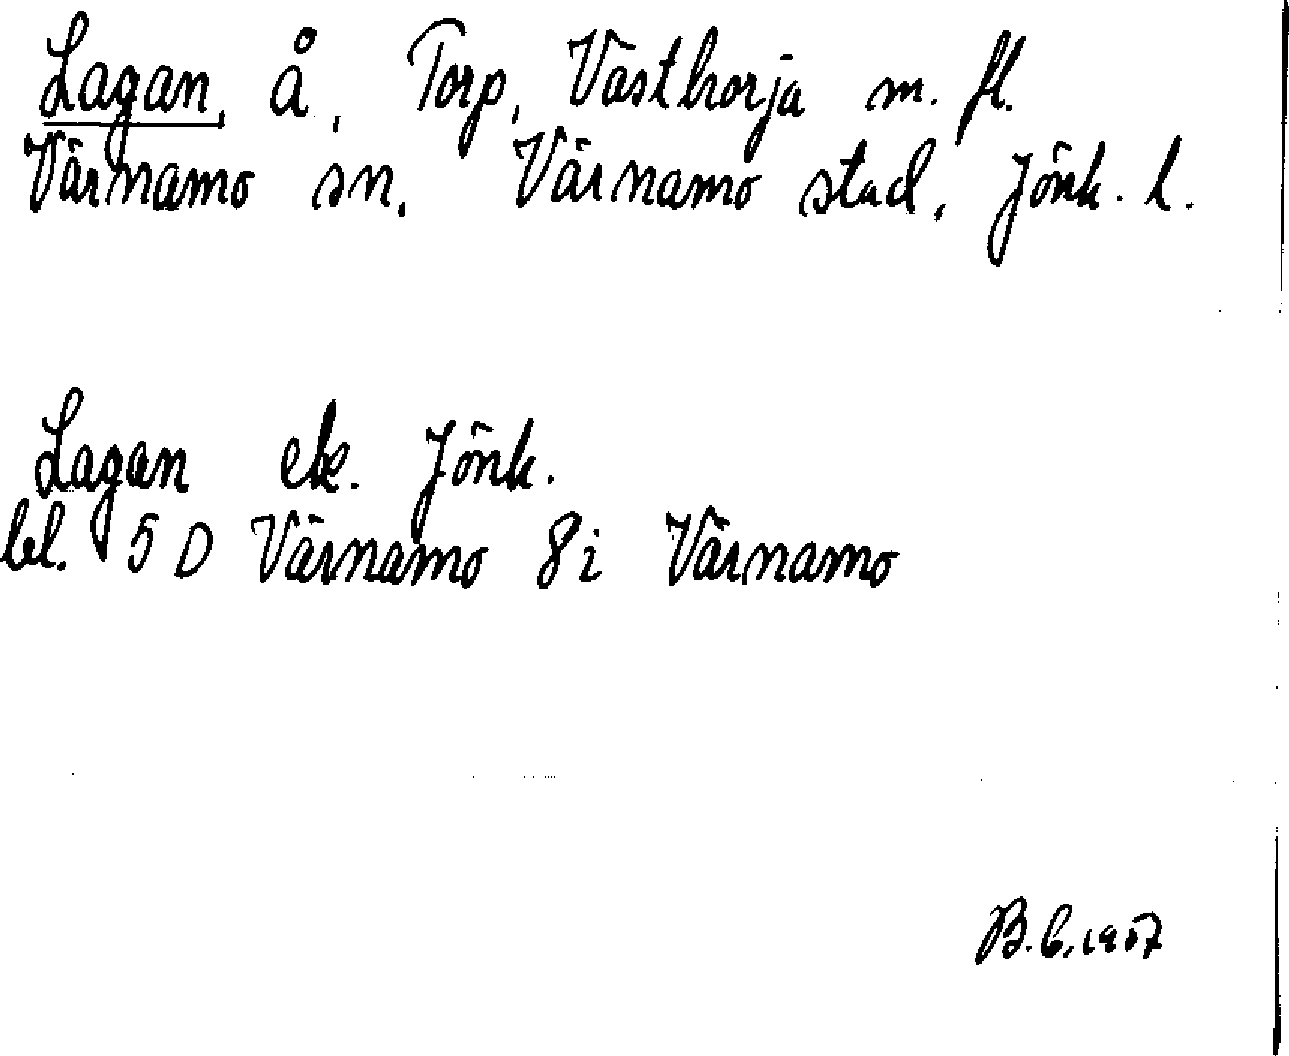 Lagan, å, Torp, Västhorja m. fl.
Värnamo sn, Värnamo stad, Jönk. l.
Lagan ek. Jönk.
bl. 5 D Värnamo 8 i Värnamo
B.C. 1957